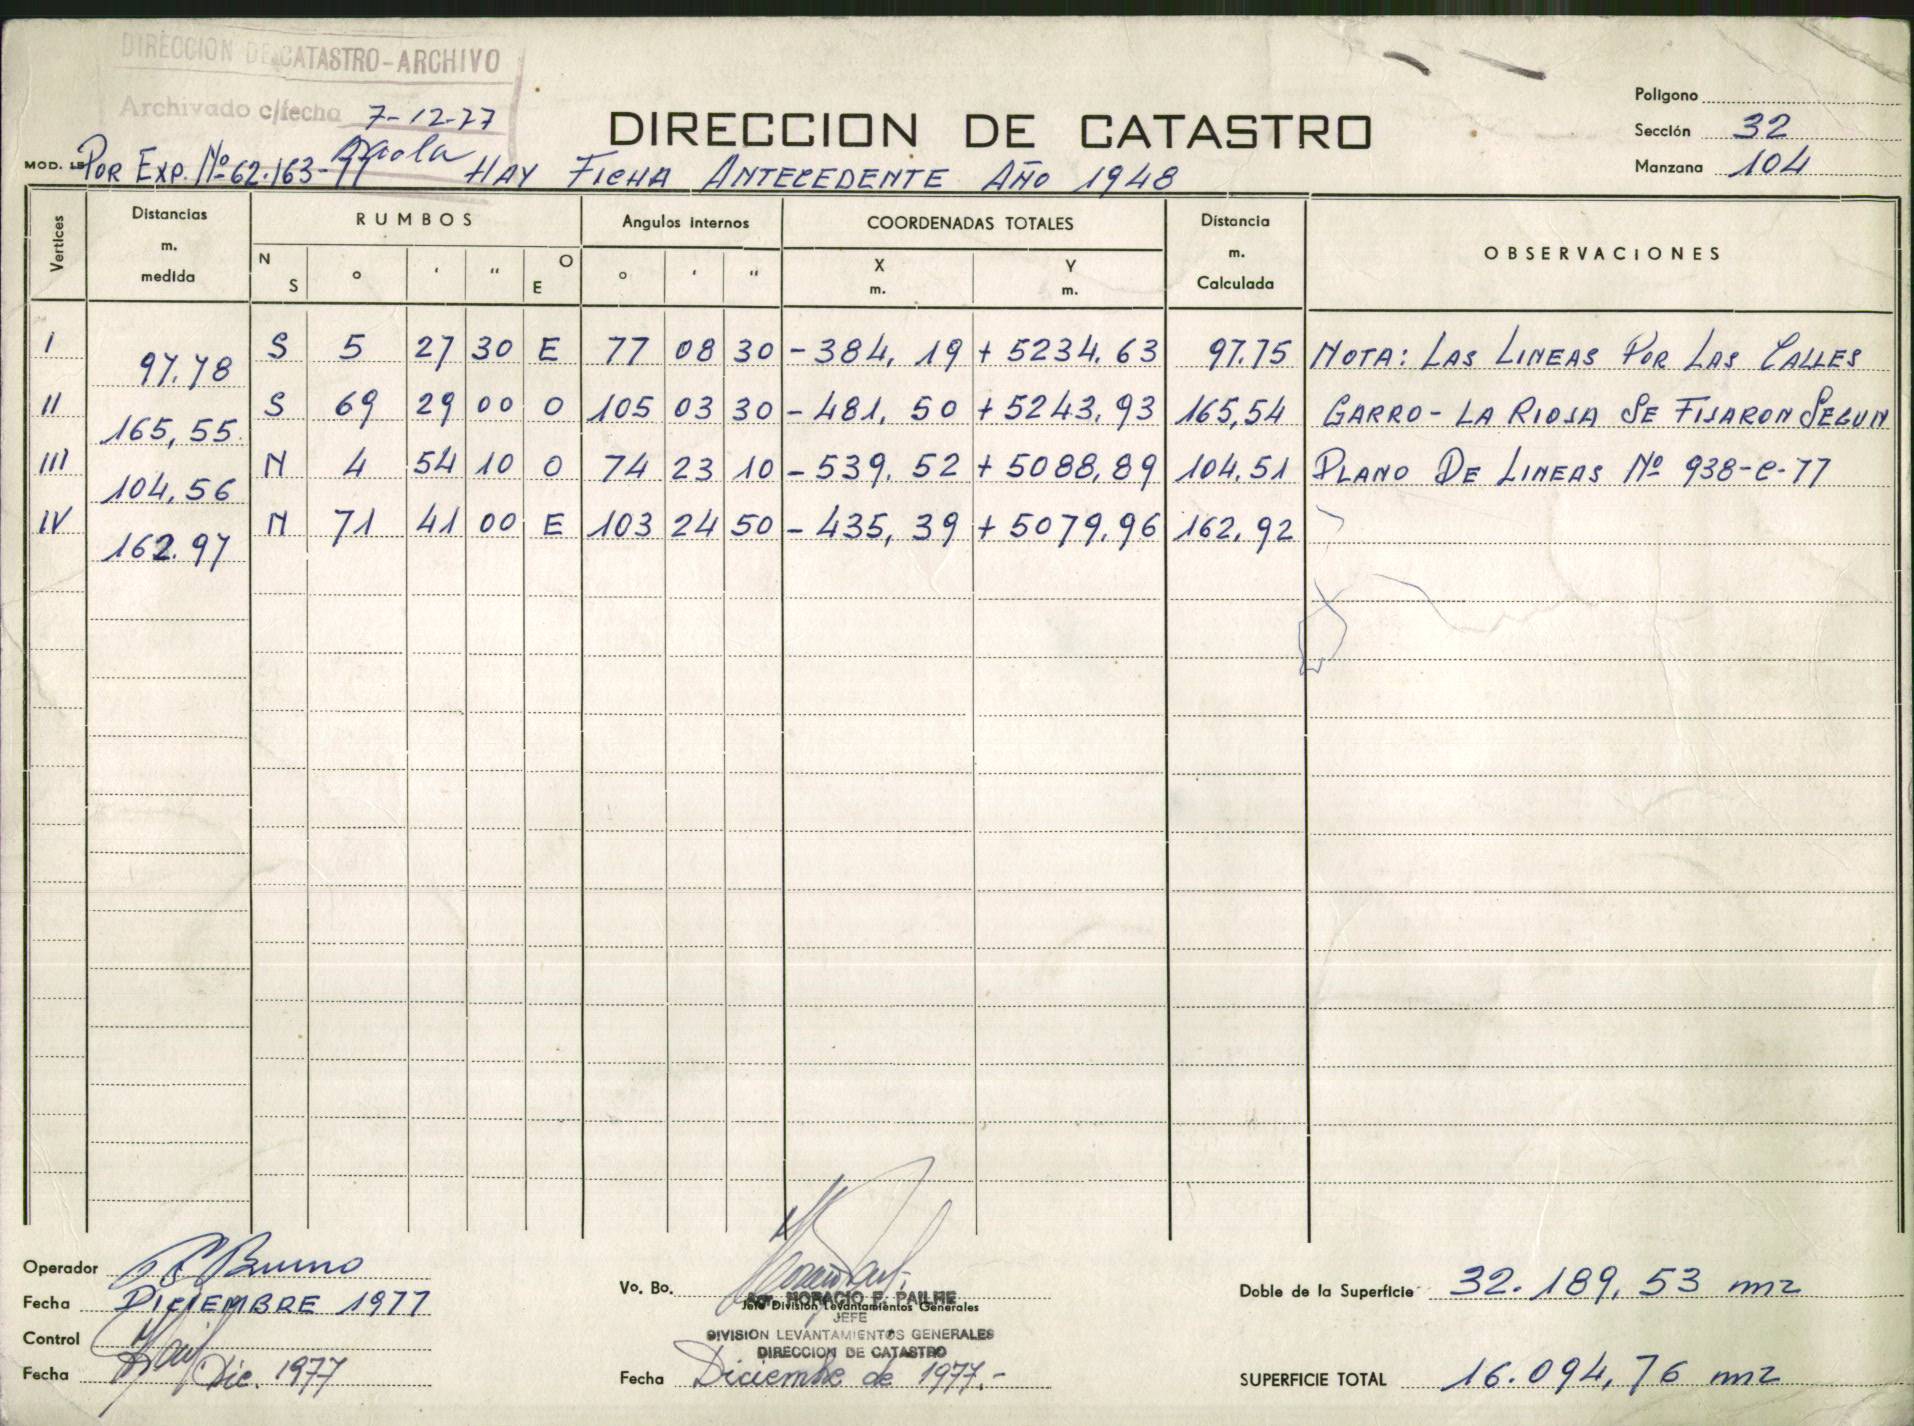 DIRECCION DE CATASTRO-ARCHIVO
Archivado c/fecha 7-12-77
DIRECCION DE CATASTRO
Poligono
Sección 32
Manzana 104
MOD. POR EXP. Nº 62.163-77 HAY FICHA ANTECEDENTE AÑO 1948
Vertices Distancias m. medida RUMBOS Angulos internos COORDENADAS TOTALES Distancia m. Calculada OBSERVACIONES
N S ° ' " O E ° ' " X m. Y m.
I 97.78 S 5 27 30 E 77 08 30 -384,19 +5234.63 97.75 NOTA: LAS LINEAS POR LAS CALLES
II 165,55 S 69 29 00 O 105 03 30 -481,50 +5243,93 165,54 GARRO - LA RIOJA SE FIJARON SEGUN
III 104,56 N 4 54 10 O 74 23 10 -539,52 +5088,89 104,51 PLANO DE LINEAS Nº 938-C-77
IV 162.97 N 71 41 00 E 103 24 50 -435,39 +5079,96 162,92
Operador Bruno
Fecha DICIEMBRE 1977
Control
Fecha Dic. 1977
Vo. Bo.
Agr. HORACIO E. PAILHE
Jefe División Levantamientos Generales
JEFE
DIVISION LEVANTAMIENTOS GENERALES
DIRECCION DE CATASTRO
Fecha Diciembre de 1977.-
Doble de la Superficie 32.189,53 m2
SUPERFICIE TOTAL 16.094,76 m2